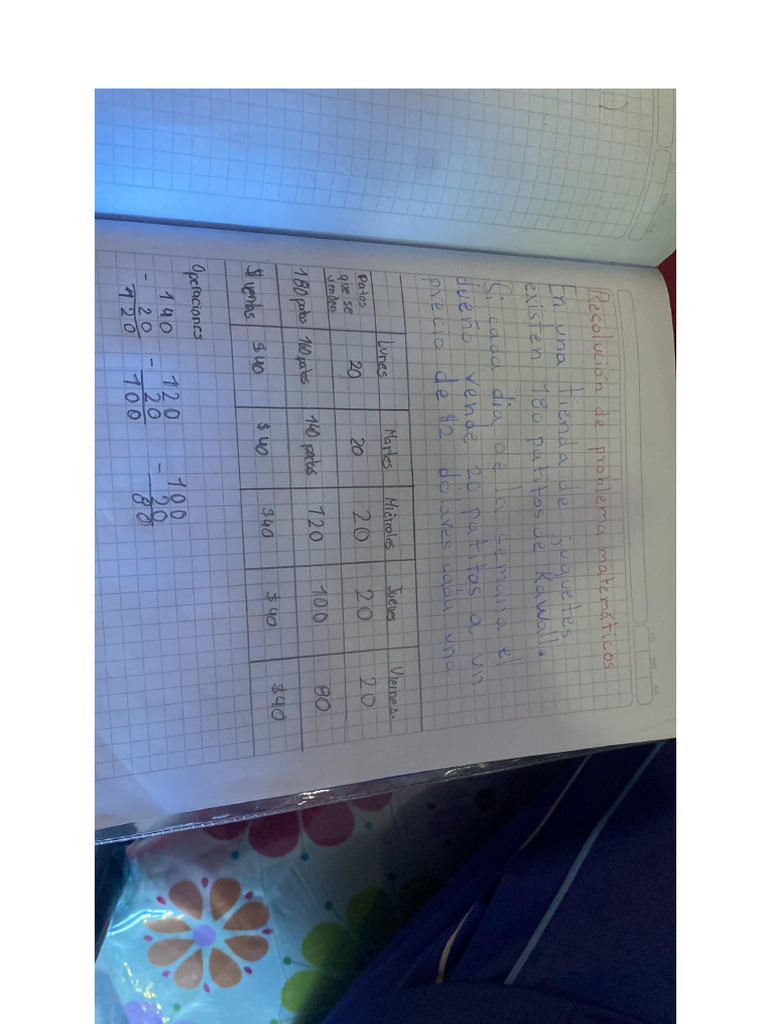 Resolución de problema matemáticos
En una tienda de juguetes
existen 180 patitos de Kawall.
Si cada dia de la semana el
dueño vende 20 patitos a un
precio de $2 dolares cada una
Lunes Martes Miércoles Jueves Viernes.
Patos que se venden 20 20 20 20 20
180 patos 160 patos 140 patos 120 100 80
$ ventas $40 $40 $40 $40 $40
Operaciones
140 120 100
- 20 - 20 - 20
120 100 80